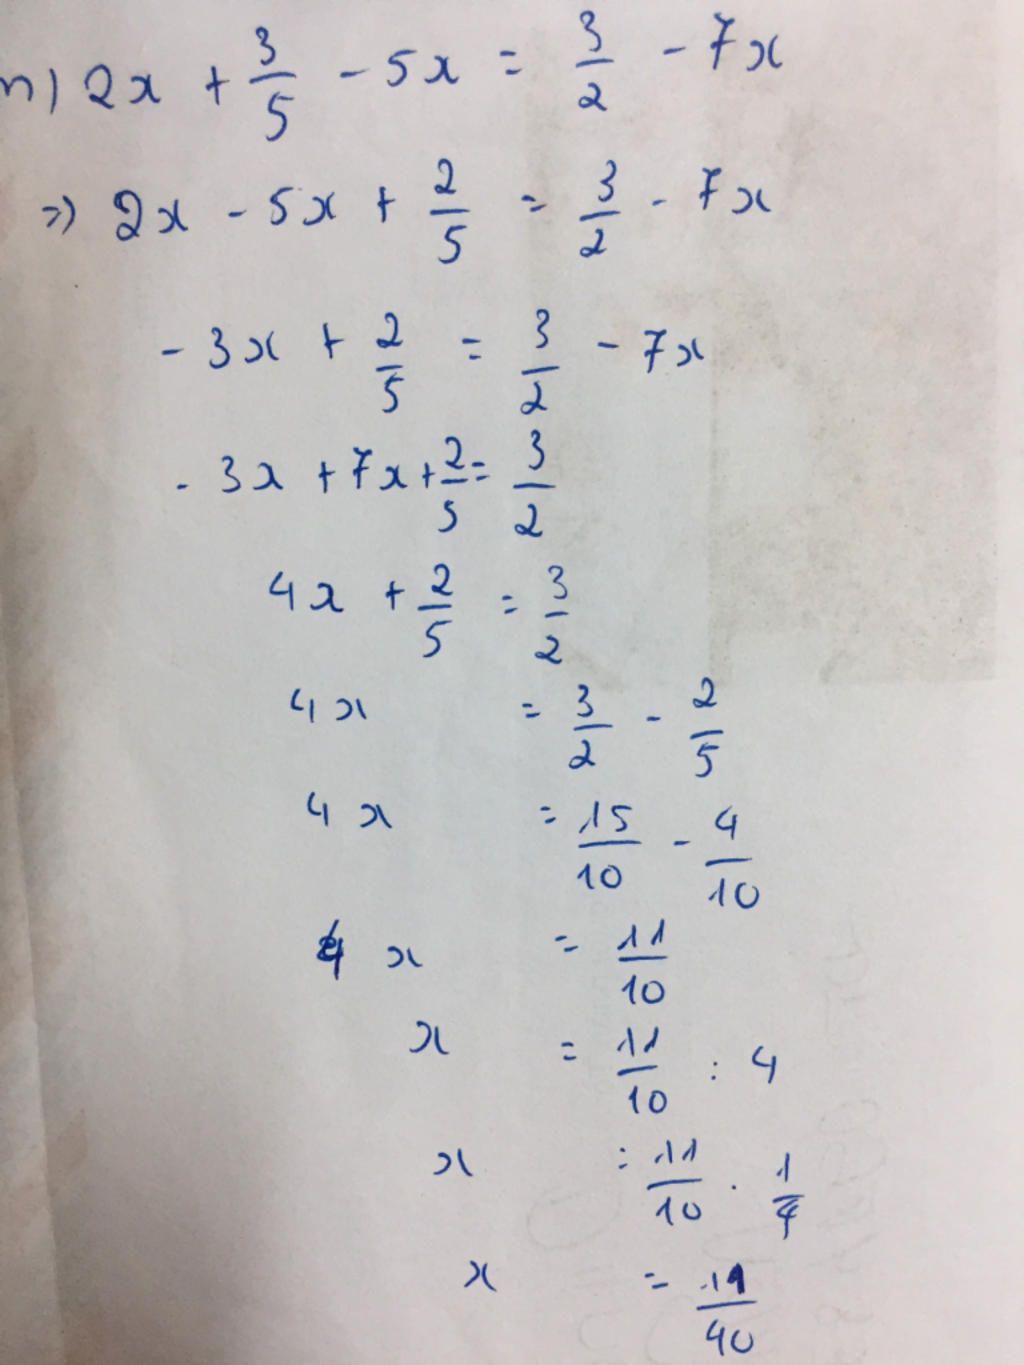 n) 2x + 3/5 - 5x = 3/2 - 7x
=> 2x - 5x + 2/5 = 3/2 - 7x
- 3x + 2/5 = 3/2 - 7x
- 3x + 7x + 2/5 = 3/2
4x + 2/5 = 3/2
4x = 3/2 - 2/5
4x = 15/10 - 4/10
4x = 11/10
x = 11/10 : 4
x = 11/10 . 1/4
x = 11/40